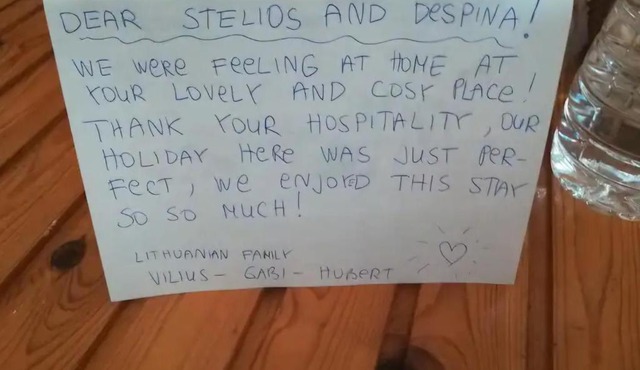 DEAR STELIOS AND DESPINA!
WE WERE FEELING AT HOME AT
YOUR LOVELY AND COSY PLACE!
THANK YOUR HOSPITALITY, OUR
HOLIDAY HERE WAS JUST PER-
FECT, WE ENJOYED THIS STAY
SO SO MUCH!
LITHUANIAN FAMILY
VILIUS - GABI - HUBERT